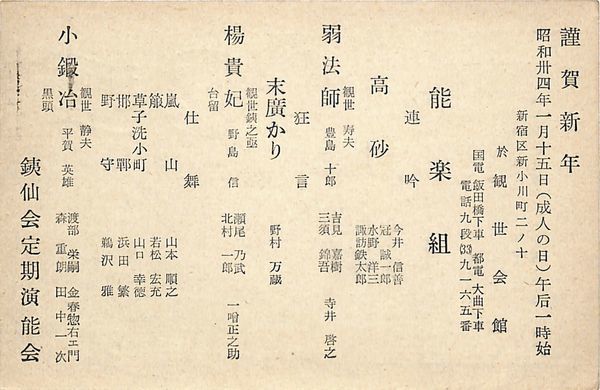 謹賀新年
昭和卅四年一月十五日（成人の日）午后一時始
新宿区新小川町二ノ十
於観世会館
国電 飯田橋下車 都電 大曲下車
電話九段(33)九一六五番
能楽組
連吟
今井信善
冠誠一郎
水野洋三
諏訪鉄太郎
高砂
観世寿夫
弱法師
豊島十郎
吉見嘉樹
三須錦吾
寺井啓之
狂言
末廣かり
野村万蔵
観世銕之亟
楊貴妃
台留
野島信
瀬尾乃武
北村一郎
一噌正之助
仕舞
嵐山 山本順之
箙 若松宏充
草子洗小町 山口幸徳
邯鄲 浜田繁
野守 鵜沢雅
観世静夫
小鍛冶
黒頭
平賀英雄
渡部栄嗣
森重朗
金春惣右エ門
田中一次
銕仙会定期演能会